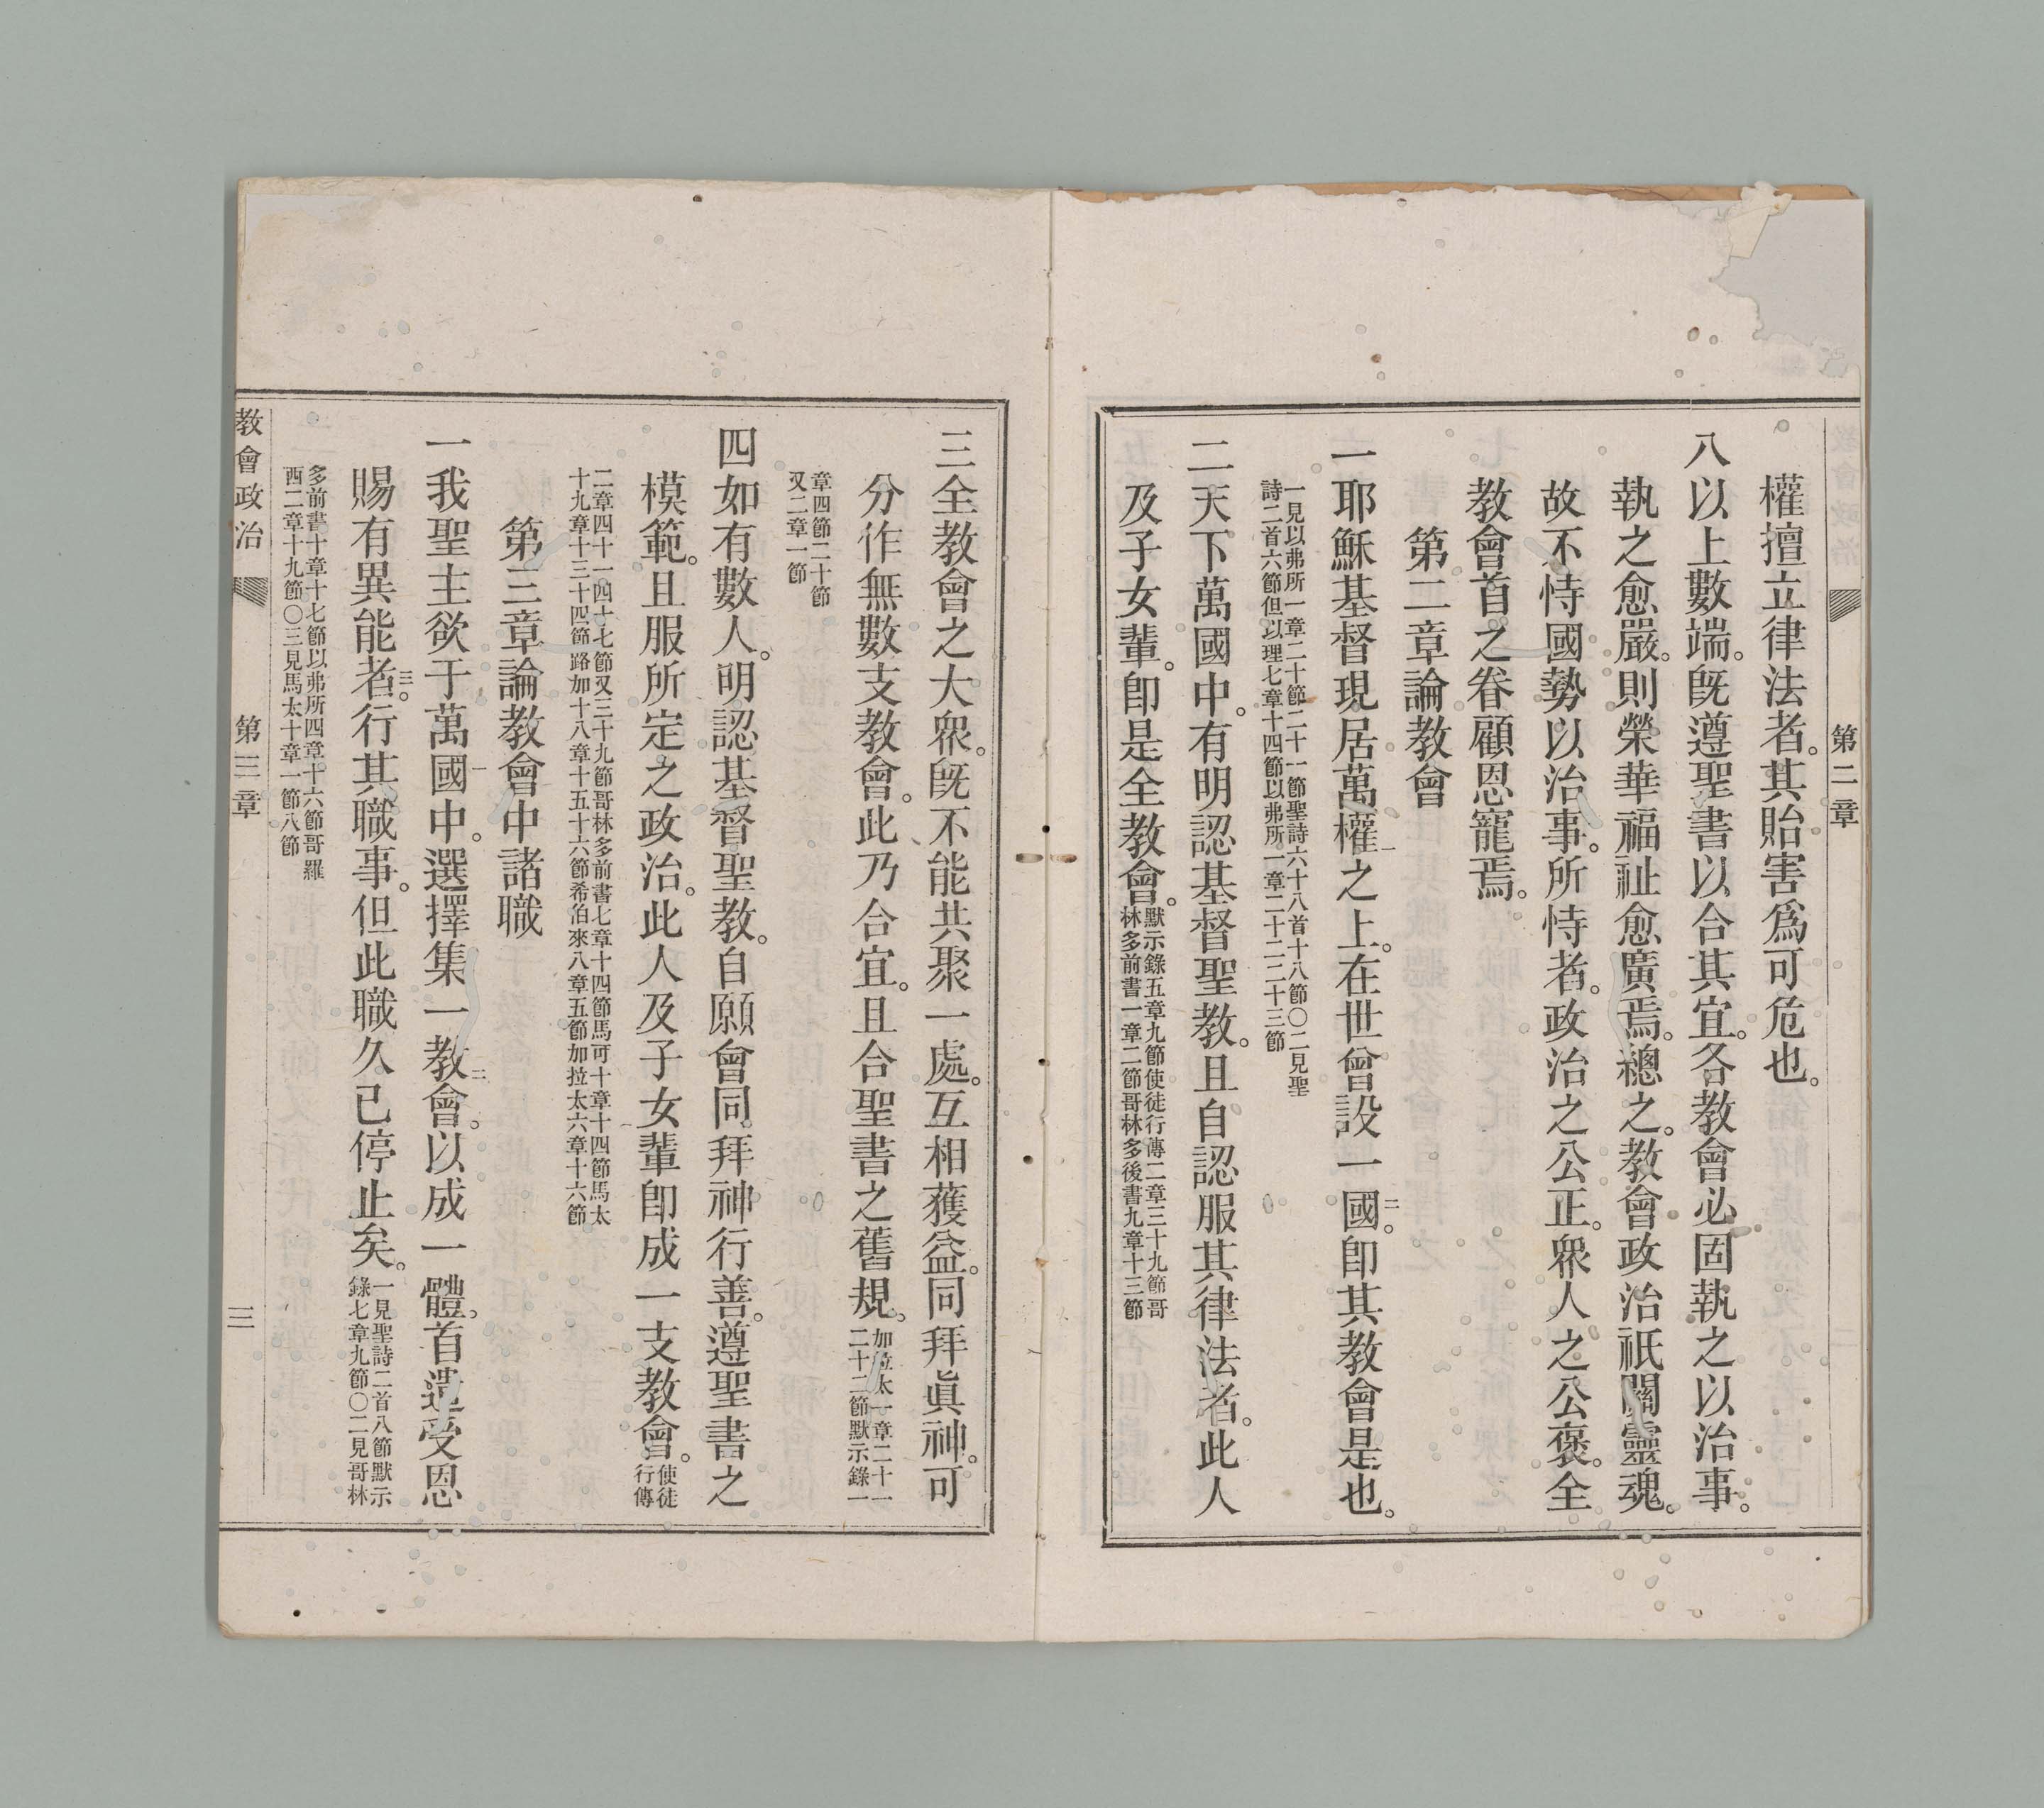 第二章
權擅立律法者。其貽害爲可危也。
八以上數端。旣遵聖書以合其宜。各教會必固執之以治事。
執之愈嚴。則榮華福祉愈廣焉。總之。教會政治祇關靈魂。
故不恃國勢以治事。所恃者。政治之公正。衆人之公褒。全
教會首之眷顧恩寵焉。
第二章論教會
一耶穌基督現居萬權一之上。在世曾設一國二。卽其教會是也。
一見以弗所一章二十節二十一節聖詩六十八首十八節〇二見聖
詩二首六節但以理七章十四節以弗所一章二十二二十三節
二天下萬國中。有明認基督聖教。且自認服其律法者。此人
及子女輩。卽是全教會。
默示錄五章九節使徒行傳二章三十九節哥
林多前書一章二節哥林多後書九章十三節
三全教會之大衆。旣不能共聚一處。互相獲益。同拜眞神。可
分作無數支教會。此乃合宜。且合聖書之舊規。
加拉太一章二十一
二十二節默示錄一
章四節二十節
又二章一節
四如有數人。明認基督聖教。自願會同。拜神行善。遵聖書之
模範。且服所定之政治。此人及子女輩卽成一支教會。
使徒
行傳
二章四十一四十七節又三十九節哥林多前書七章十四節馬可十章十四節馬太
十九章十三十四節路加十八章十五十六節希伯來八章五節加拉太六章十六節
第三章論教會中諸職
一我聖主欲于萬國一中。選擇集一教二會。以成一體。首遣受恩
賜有異能者三。行其職事。但此職久已停止矣。
一見聖詩二首八節默示
錄七章九節〇二見哥林
多前書十章十七節以弗所四章十六節哥羅
西二章十九節〇三見馬太十章一節八節
教會政治 第三章 三